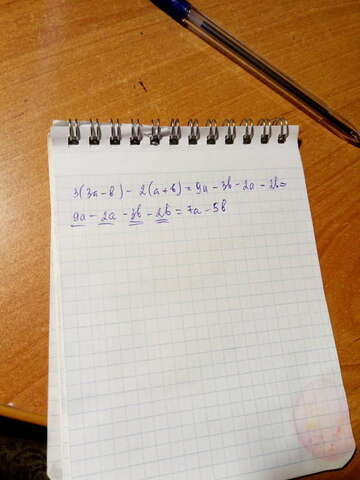 3(3a-b)-2(a+b)=9a-3b-2a-2b=
9a-2a-3b-2b=7a-5b